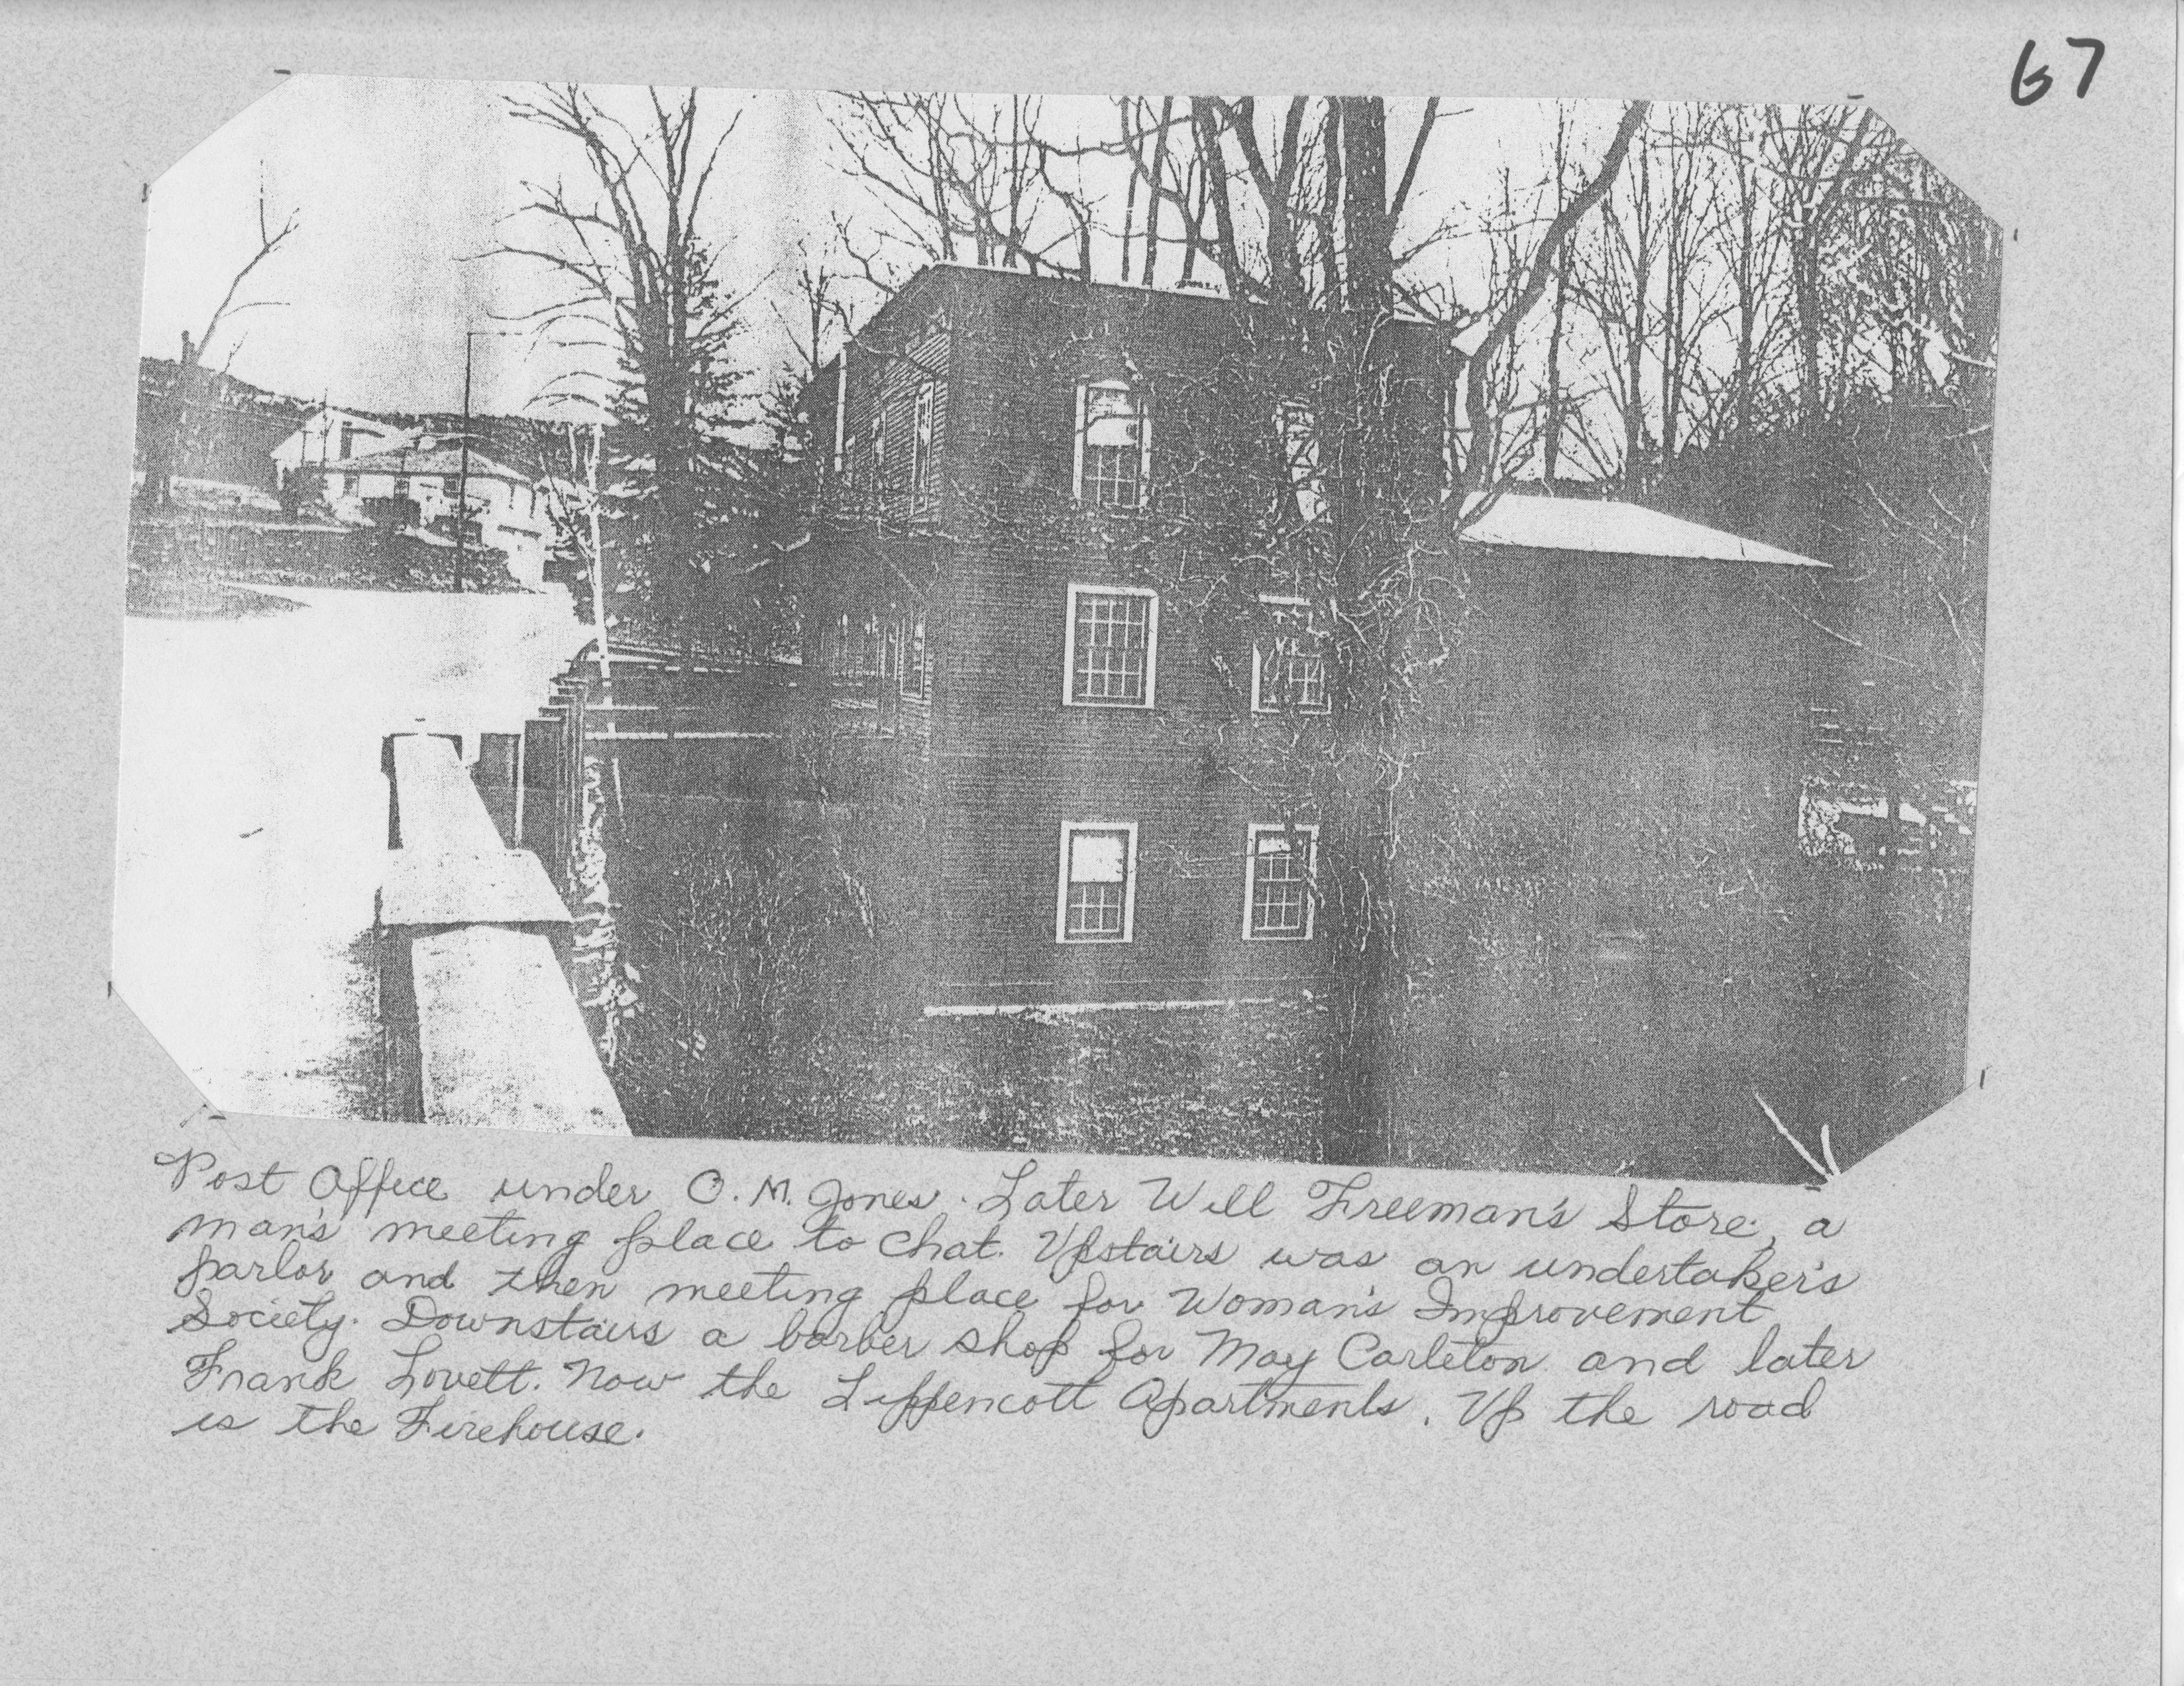 67
Post Office under O. M. Jones. Later Will Freeman's Store, a
man's meeting place to chat. Upstairs was an undertaker's
parlor and then meeting place for Woman's Improvement
Society. Downstairs a barber shop for May Carleton and later
Frank Lovett. Now the Lippencott Apartments. Up the road
is the Firehouse.